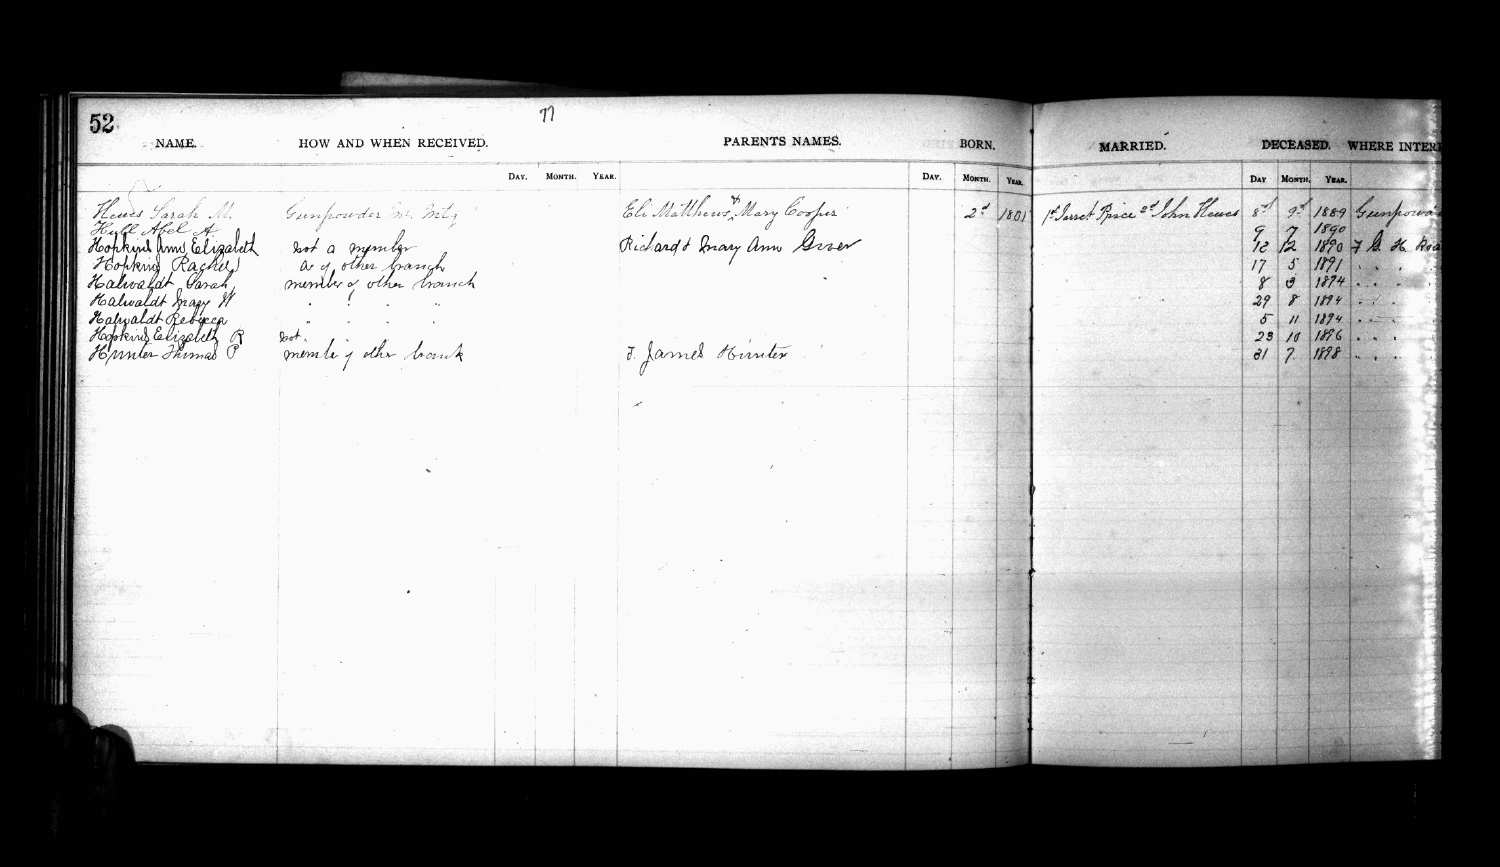 52
77
NAME. HOW AND WHEN RECEIVED. PARENTS NAMES. BORN. MARRIED. DECEASED. WHERE INTER
DAY. MONTH. YEAR. DAY. MONTH. YEAR. DAY MONTH. YEAR.
Hewes Sarah M. Gunpowder Mo. Mtg Eli Matthews & Mary Cooper 2d 1801 1st Jarret Price 2d John Hewes 8d 9d 1889 Gunpow
Hull Abel A. 9 7 1890
Hopkins Ann Elizabeth not a member Richard & Mary Ann Grover 12 12 1890 F G H
Hopkins Rachel of other branch 17 5 1891 " " "
Halwaldt Sarah member of other branch 8 3 1894 " " "
Halwaldt Mary W " " " " 29 8 1894 " " "
Halwaldt Rebecca " " " " 5 11 1894 " " "
Hopkins Elizabeth R not " " 23 10 1896 " " "
Hunter Thomas P member of other branch F. James Hunter 31 7 1898 " " "